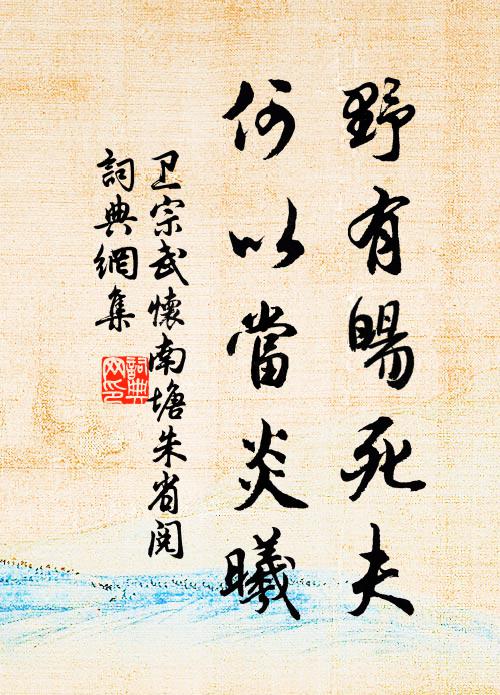 野有暍死夫
何以當炎曦
卫宗武懷南塘朱省閱
詞典網集
詞典
网印